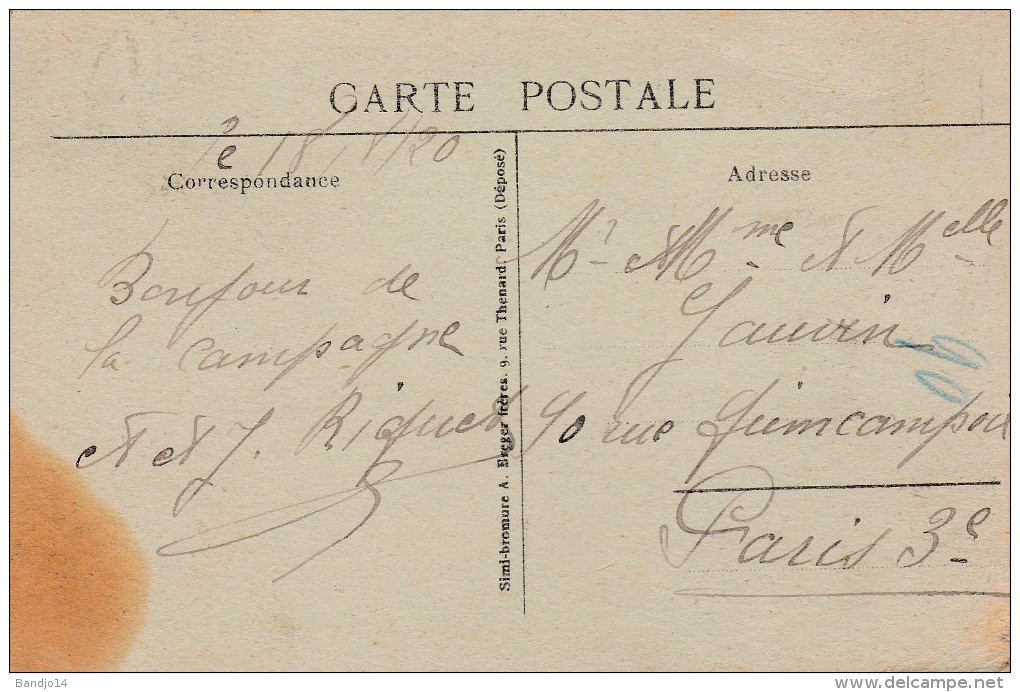 CARTE POSTALE
le 18/8/20
Correspondance
Bonjour de
la campagne
et J. Riquet
Simi-bromure A. Breger frères. 9, rue Thenard, Paris (Déposé)
Adresse
Mr et Mme et Melle
Gauvin
90 rue Quincampoix
Paris 3e
Bandjo14
www.delcampe.net